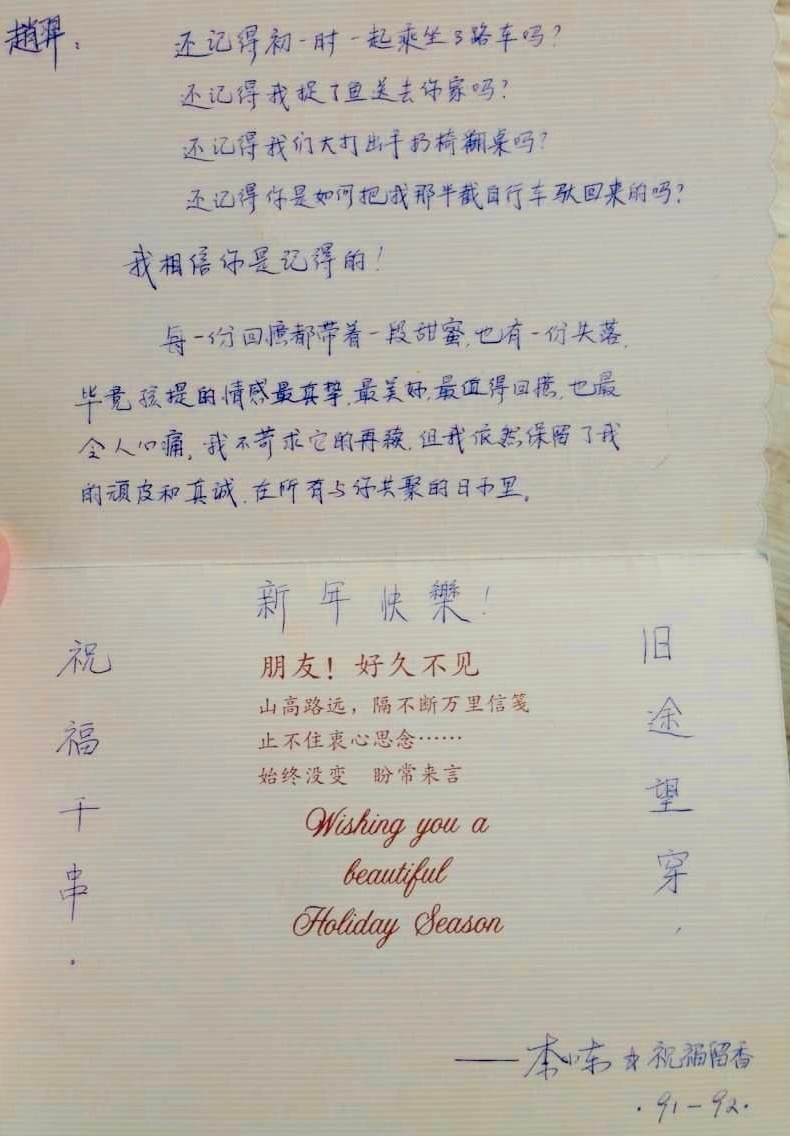 赵羿： 还记得初一时一起乘坐3路车吗？
还记得我捉了鱼送去你家吗？
还记得我们大打出手扔椅翻桌吗？
还记得你是如何把我那半截自行车驮回来的吗？
我相信你是记得的！
每一份回忆都带着一段甜蜜，也有一份失落，
毕竟孩提的情感最真挚，最美好，最值得回忆，也最
令人心痛，我不苛求它的再续，但我依然保留了我
的顽皮和真诚，在所有与你共聚的日子里。
新年快樂！
旧途望穿，
祝福千串。
朋友！好久不见
山高路远，隔不断万里信笺
止不住衷心思念……
始终没变 盼常来言
Wishing you a
beautiful
Holiday Season
——李小东 祝福留香
·91-92·